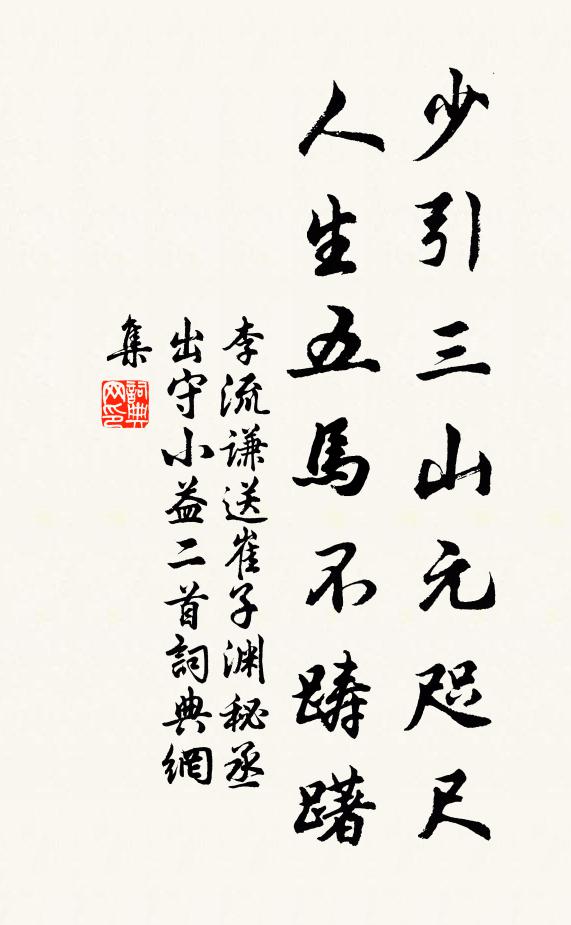 少引三山元咫尺
人生五馬不躊躇
李流謙送崔子渊秘丞
出守小益二首詞典網
集
詞典
网印